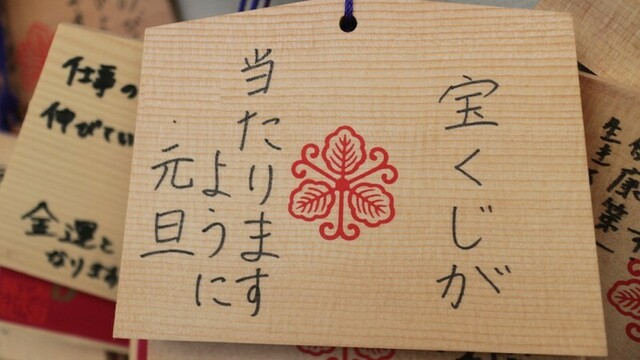 宝くじが
当たります
ように
元旦
仕事の
伸びてい
金運と
なります
健康第一